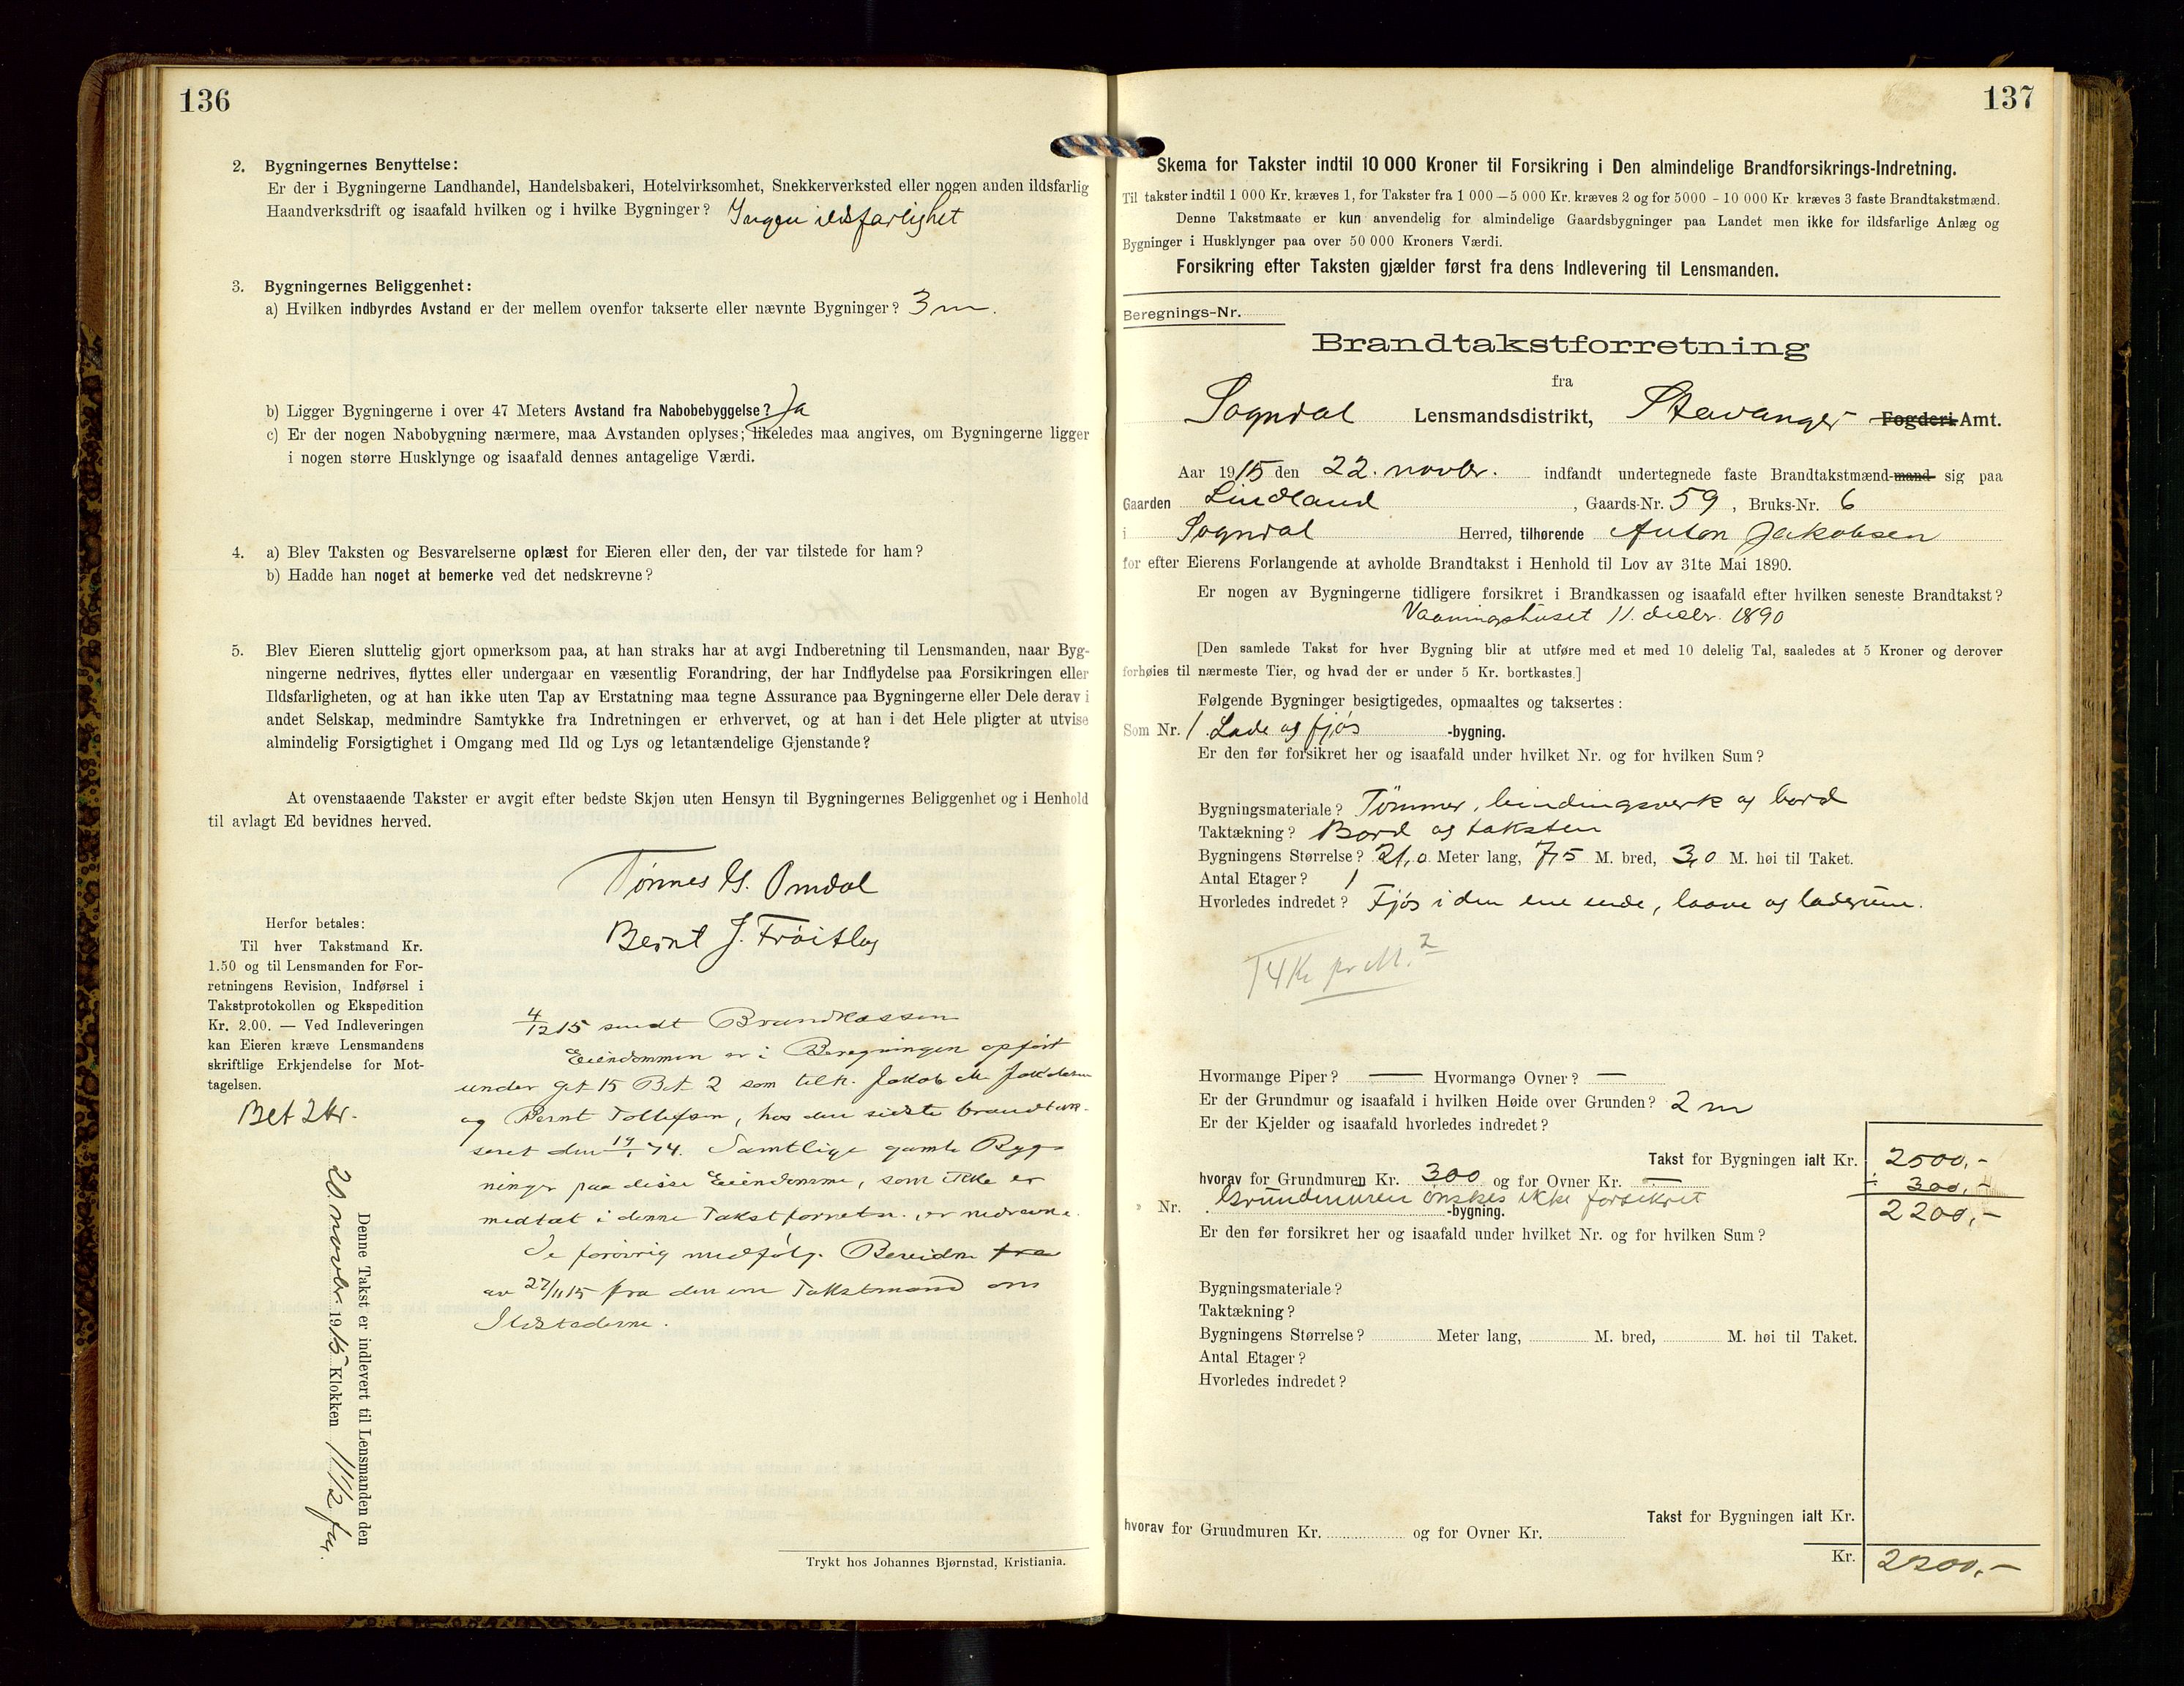 136
2. Bygningernes Benyttelse:
Er der i Bygningerne Landhandel, Handelsbakeri, Hotelvirksomhet, Snekkerverksted eller nogen anden ildsfarlig
Haandverksdrift og isaafald hvilken og i hvilke Bygninger? Ingen ildsfarlighet
3. Bygningernes Beliggenhet:
a) Hvilken indbyrdes Avstand er der mellem ovenfor takserte eller nævnte Bygninger? 3 m.
b) Ligger Bygningerne i over 47 Meters Avstand fra Nabobebyggelse? Ja
c) Er der nogen Nabobygning nærmere, maa Avstanden oplyses; likeledes maa angives, om Bygningerne ligger
i nogen større Husklynge og isaafald dennes antagelige Værdi.
4. a) Blev Taksten og Besvarelserne oplæst for Eieren eller den, der var tilstede for ham?
b) Hadde han noget at bemerke ved det nedskrevne?
5. Blev Eieren sluttelig gjort opmerksom paa, at han straks har at avgi Indberetning til Lensmanden, naar Byg-
ningerne nedrives, flyttes eller undergaar en væsentlig Forandring, der har Indflydelse paa Forsikringen eller
Ildsfarligheten, og at han ikke uten Tap av Erstatning maa tegne Assurance paa Bygningerne eller Dele derav i
andet Selskap, medmindre Samtykke fra Indretningen er erhvervet, og at han i det Hele pligter at utvise
almindelig Forsigtighet i Omgang med Ild og Lys og letantændelige Gjenstande?
At ovenstaaende Takster er avgit efter bedste Skjøn uten Hensyn til Bygningernes Beliggenhet og i Henhold
til avlagt Ed bevidnes herved.
Tönnes G. Omdal
Bernt J. Fröitlog
Herfor betales:
Til hver Takstmand Kr.
1.50 og til Lensmanden for For-
retningens Revision, Indførsel i
Takstprotokollen og Ekspedition
Kr. 2.00. — Ved Indleveringen
kan Eieren kræve Lensmandens
skriftlige Erkjendelse for Mot-
tagelsen.
Bet 2 kr.
4/12 15 sendt Brandkassen
Eiendommen er i Beregningen opført
under Get 15 Bet 2 som tilh. Jakob M Jakobsen
og Bernt Tollefsen, hos den sidste brandtak-
seret den 19/1 74. Samtlige gamle Byg-
ninger paa disse Eiendomme, som ikke er
medtat i denne Takstforretn. er nedrevne.
Se forøvrig medfølg. Bevidn fra
av 27/11 15 fra den ene Takstmand om
Ildstederne.
Denne Takst er indlevert til Lensmanden den
20. novbr. 1915 Klokken 11 1/2 fm.
Trykt hos Johannes Bjørnstad, Kristiania.
137
Skema for Takster indtil 10 000 Kroner til Forsikring i Den almindelige Brandforsikrings-Indretning.
Til takster indtil 1 000 Kr. kræves 1, for Takster fra 1 000 — 5 000 Kr. kræves 2 og for 5000 - 10 000 Kr. kræves 3 faste Brandtakstmænd.
Denne Takstmaate er kun anvendelig for almindelige Gaardsbygninger paa Landet men ikke for ildsfarlige Anlæg og
Bygninger i Husklynger paa over 50 000 Kroners Værdi.
Forsikring efter Taksten gjælder først fra dens Indlevering til Lensmanden.
Beregnings-Nr.
Brandtakstforretning
fra
Sogndal Lensmandsdistrikt, Stavanger Fogderi Amt.
Aar 1915 den 22. novbr. indfandt undertegnede faste Brandtakstmænd-mand sig paa
Gaarden Lindland, Gaards-Nr. 59, Bruks-Nr. 6
i Sogndal Herred, tilhørende Anton Jakobsen
for efter Eierens Forlangende at avholde Brandtakst i Henhold til Lov av 31te Mai 1890.
Er nogen av Bygningerne tidligere forsikret i Brandkassen og isaafald efter hvilken seneste Brandtakst?
Vaaningshuset 11. decbr. 1890
[Den samlede Takst for hver Bygning blir at utføre med et med 10 delelig Tal, saaledes at 5 Kroner og derover
forhøies til nærmeste Tier, og hvad der er under 5 Kr. bortkastes.]
Følgende Bygninger besigtigedes, opmaaltes og taksertes:
Som Nr. 1. Lade og fjös -bygning.
Er den før forsikret her og isaafald under hvilket Nr. og for hvilken Sum?
Bygningsmateriale? Tömmer, bindingsverk og bord
Taktækning? Bord og taksten
Bygningens Størrelse? 21,0 Meter lang, 7,5 M. bred, 3,0 M. høi til Taket.
Antal Etager? 1
Hvorledes indredet? Fjös i den ene ende, laave og laderum.
14 Kr pr M.²
Hvormange Piper? — Hvormange Ovner? —
Er der Grundmur og isaafald i hvilken Høide over Grunden? 2 m
Er der Kjelder og isaafald hvorledes indredet?
Takst for Bygningen ialt Kr. 2500,-
hvorav for Grundmuren Kr. 300 og for Ovner Kr. — ÷ 300,-
Grundmuren önskes ikke forsikret
» Nr. -bygning. 2200,-
Er den før forsikret her og isaafald under hvilket Nr. og for hvilken Sum?
Bygningsmateriale?
Taktækning?
Bygningens Størrelse? Meter lang, M. bred, M. høi til Taket.
Antal Etager?
Hvorledes indredet?
Takst for Bygningen ialt Kr.
hvorav for Grundmuren Kr. og for Ovner Kr.
Kr. 2200,-